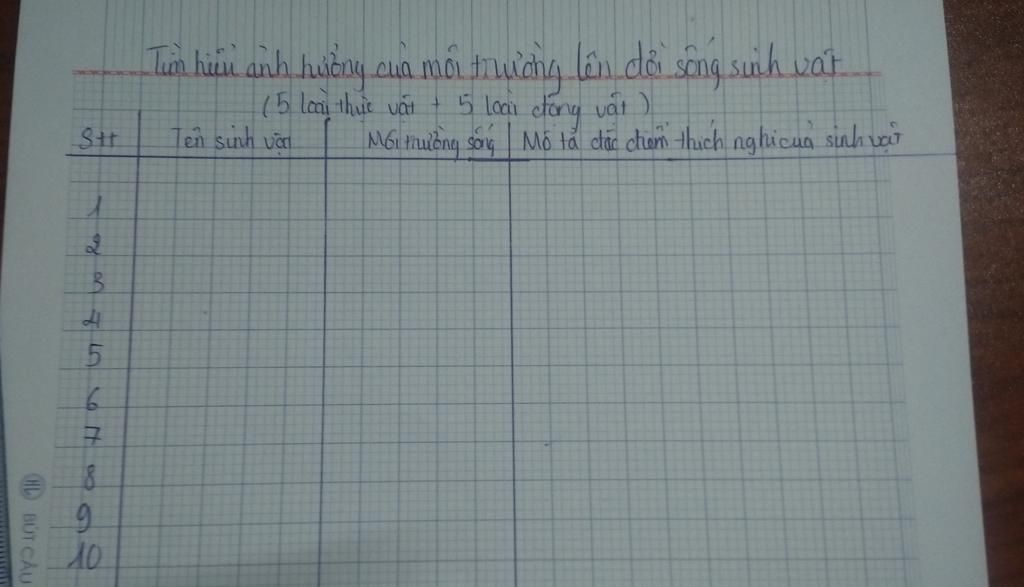 Tìm hiểu ảnh hưởng của môi trường lên đời sống sinh vật
(5 loài thực vật + 5 loài động vật)
Stt Tên sinh vật Môi trường sống Mô tả đặc điểm thích nghi của sinh vật
1
2
3
4
5
6
7
8
9
10
BÚT CÂU